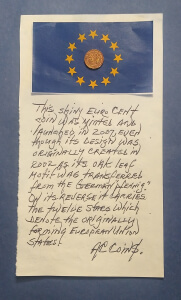 THIS SHINY EURO CENT
COIN WAS MINTED AND
LAUNCHED IN 2007, EVEN
THOUGH ITS DESIGN WAS
ORIGINALLY CREATED IN
2002 AS ITS OAK LEAF
MOTIF WAS TRANSFERRED
FROM THE GERMAN PFENNIG.
ON ITS REVERSE IT CARRIES
THE TWELVE STARS WHICH
DENOTE THE ORIGINALLY
FORMING EUROPEAN UNION
STATES!